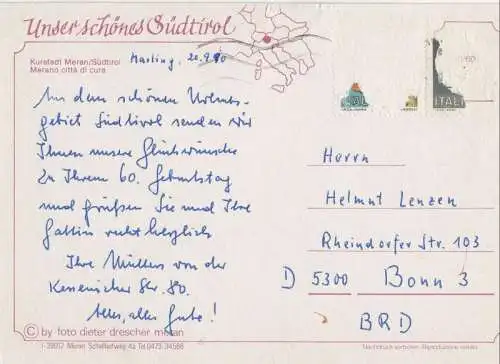 Unser schönes Südtirol
Kurstadt Meran/Südtirol
Merano città di cura
Marling, 20.9.90
Aus dem schönen Urlaubs-
gebiet Südtirol senden wir
Ihnen unsere Glückwünsche
zu Ihrem 60. Geburtstag
und grüßen Sie und Ihre
Gattin recht herzlich
Ihre Müllers von der
Kessenicher Str. 80.
Alles, alles Gute!
© by foto dieter drescher meran
I-39012 Meran Tel. 0473-34566
ITALI
Herrn
Helmut Lenzen
Rheindorfer Str. 103
D 5300 Bonn 3
BRD
Nachdruck verboten